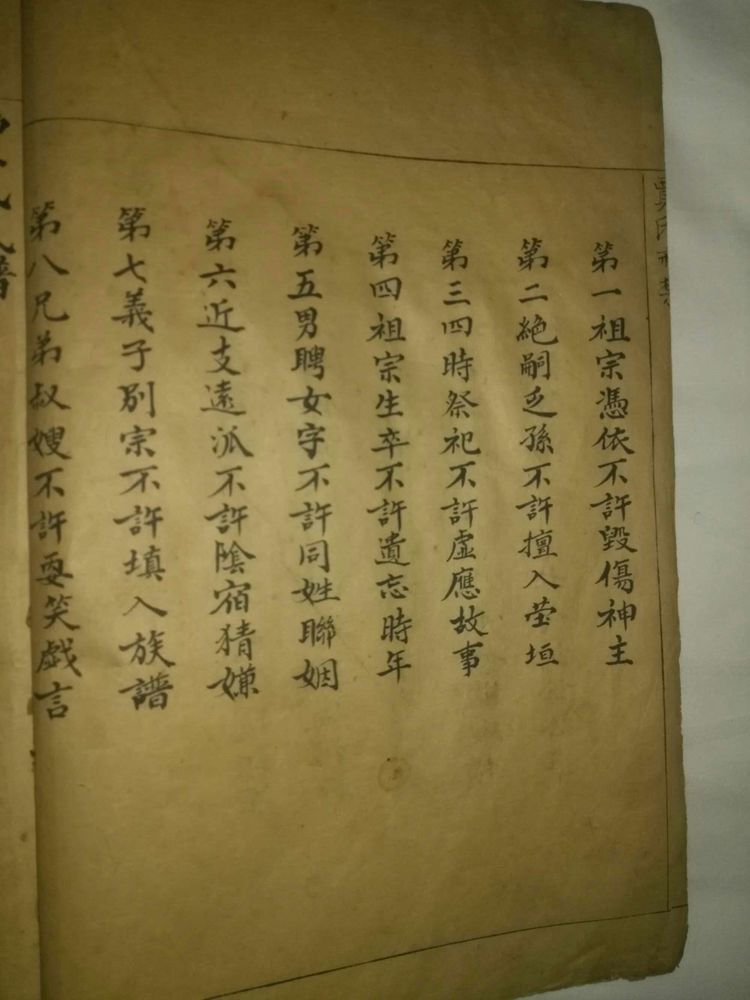 第一祖宗憑依不許毀傷神主
第二絶嗣乏孫不許擅入塋垣
第三四時祭祀不許虛應故事
第四祖宗生卒不許遺忘時年
第五男聘女字不許同姓聯姻
第六近支遠派不許陰宿猜嫌
第七義子別宗不許填入族譜
第八兄弟叔嫂不許耍笑戯言